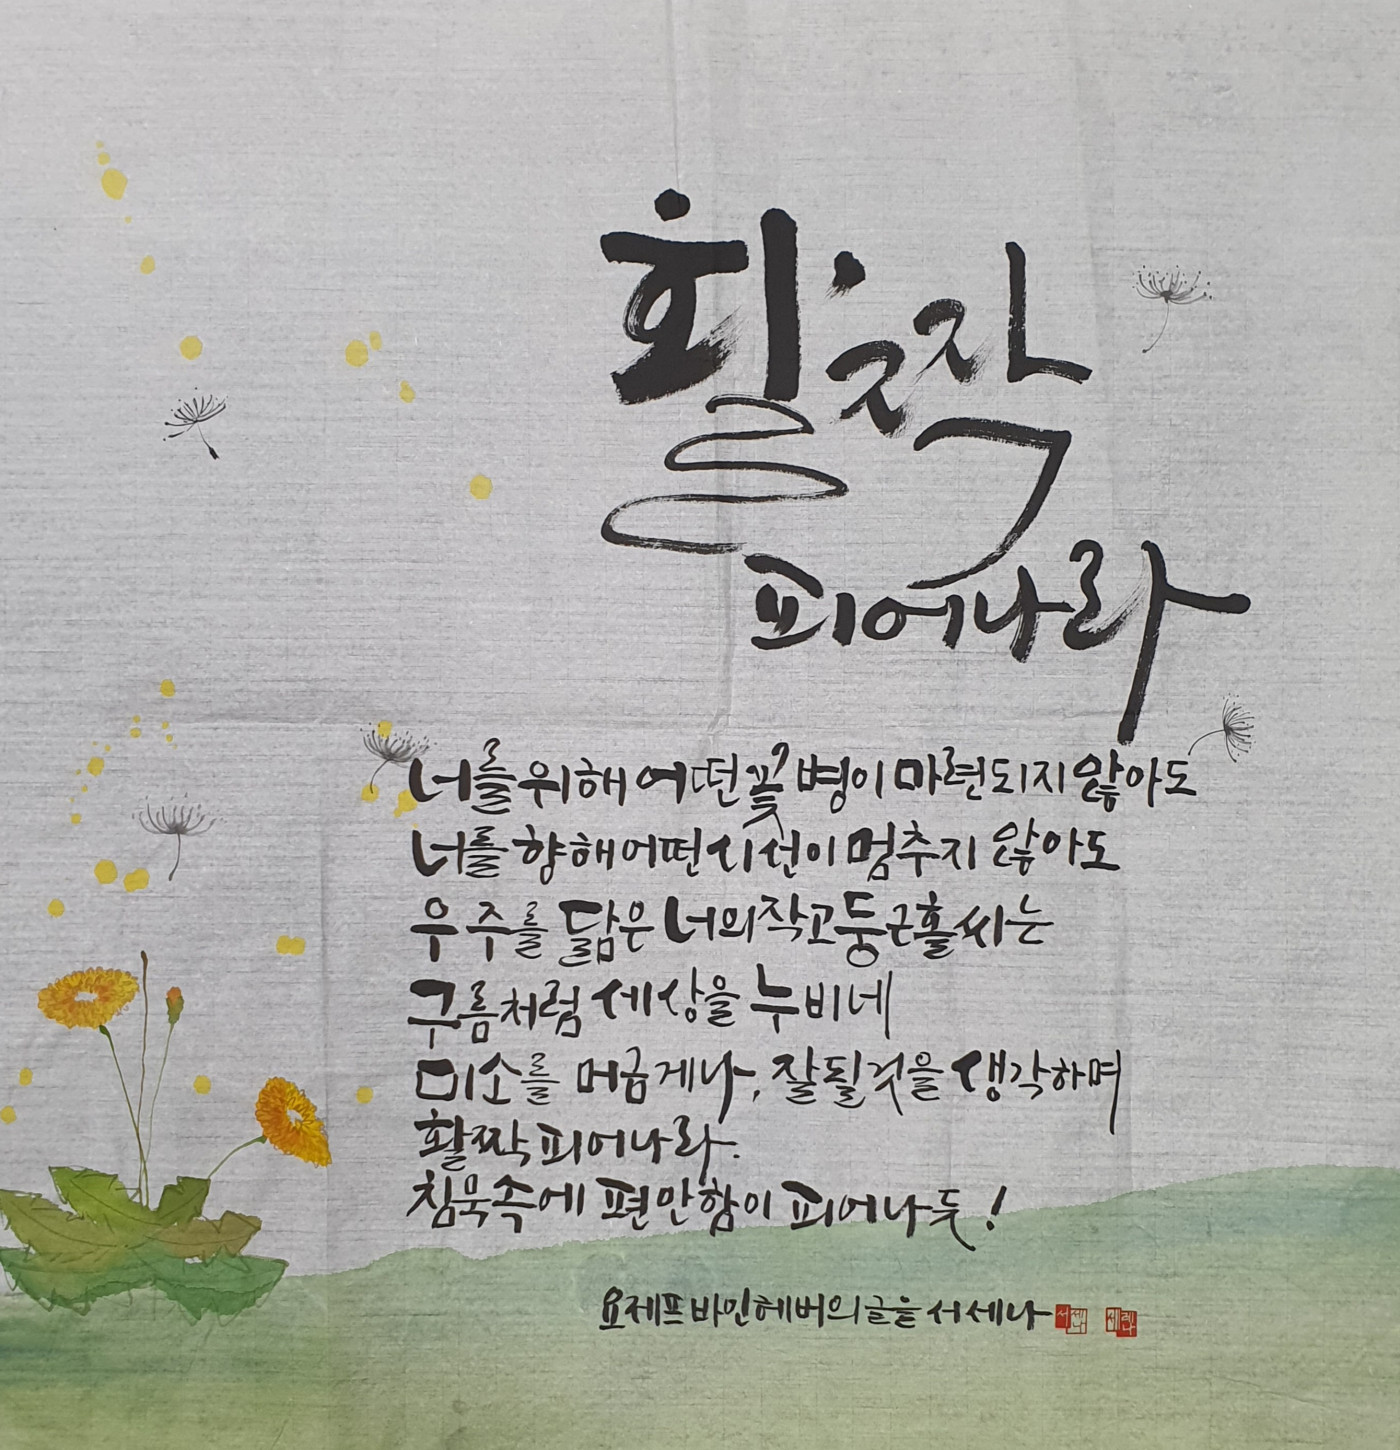 활짝
피어나라
너를 위해 어떤 꽃병이 마련되지 않아도
너를 향해 어떤 시선이 멈추지 않아도
우주를 닮은 너의 작고 둥근 홀씨는
구름처럼 세상을 누비네
미소를 머금게나, 잘될것을 생각하며
활짝 피어나라.
침묵속에 편안함이 피어나듯!
요제프 바인헤버의 글을 서세나 서세나 세레나